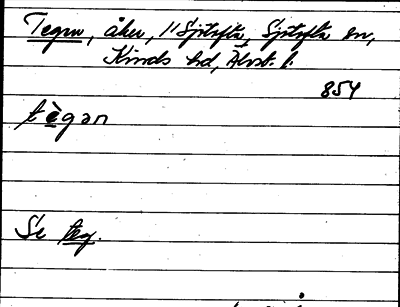 Tegen, åker, 11 Sjötofta, Sjötofta sn,
Kinds hd, Älvsb. l.
854
tègan
Se teg.